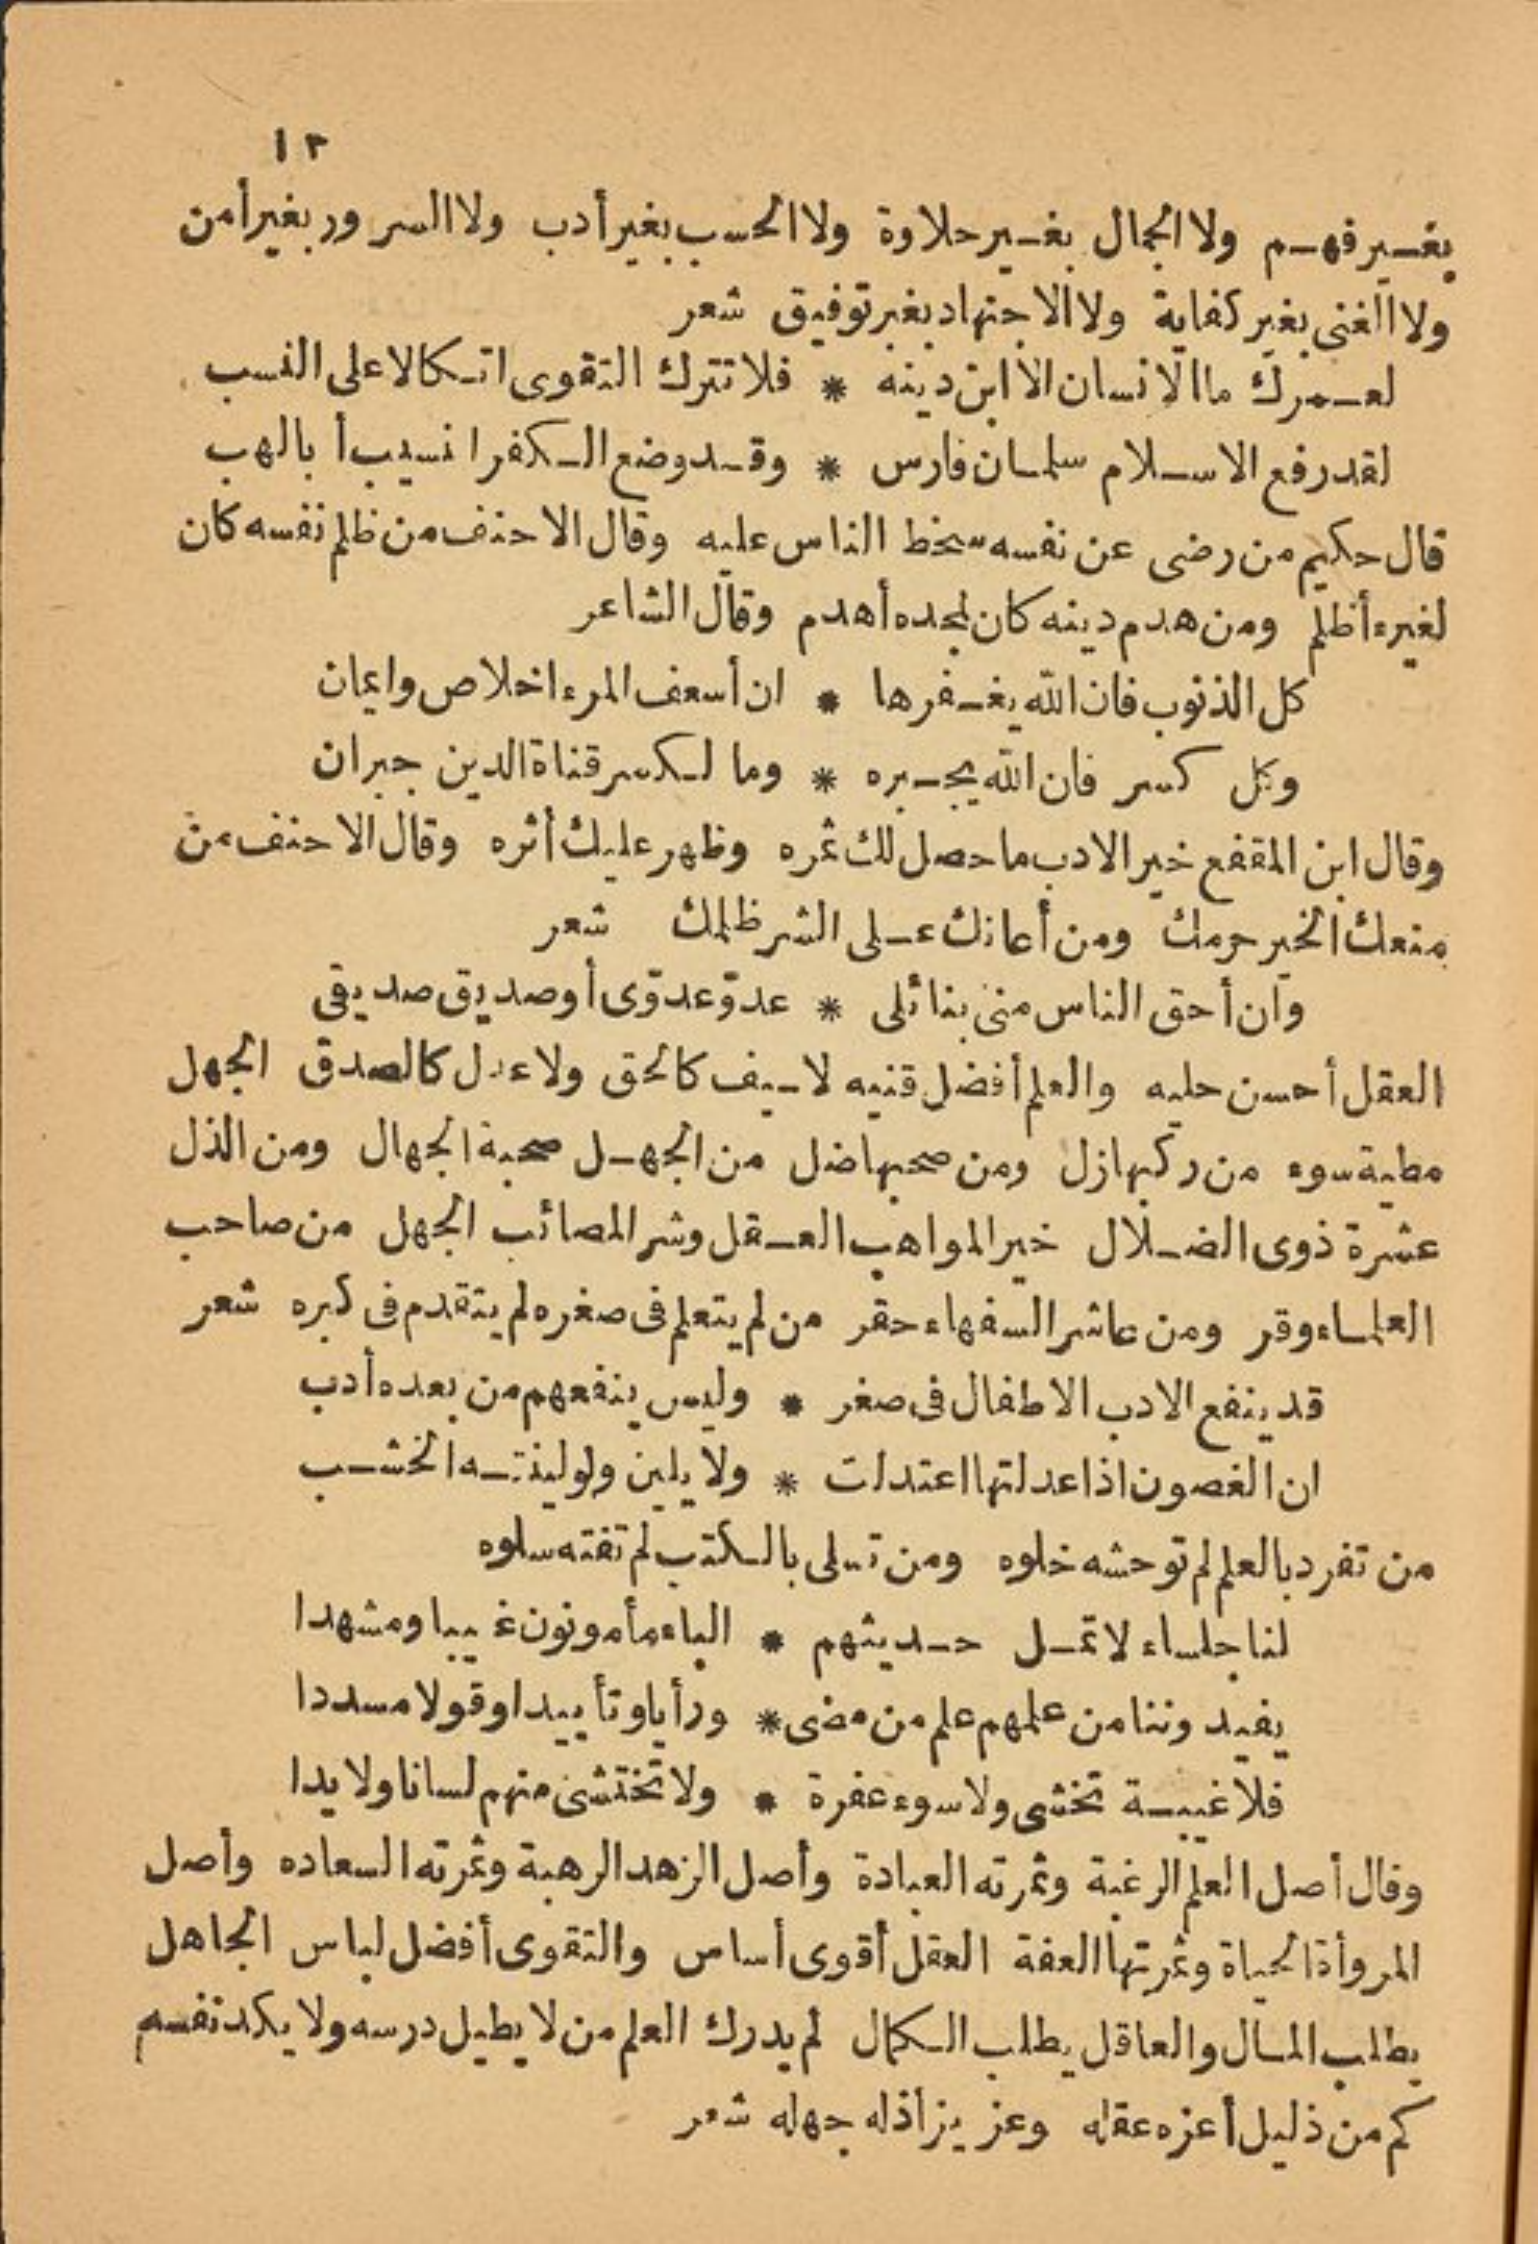 ١٢
بغير فهم ولا الجمال بغير حلاوة ولا الحسب بغير أدب ولا السرور بغير أمن
ولا الغنى بغير كفاية ولا الاجتهاد بغير توفيق شعر
لعمرك ما الانسان الا ابن دينه * فلا تترك التقوى اتكالا على النسب
لقد رفع الاسلام سلمان فارس * وقد وضع الكفر انسيب أبا لهب
قال حكيم من رضى عن نفسه سخط الناس عليه وقال الاحنف من ظلم نفسه كان
لغيره أظلم ومن هدم دينه كان لمجده أهدم وقال الشاعر
كل الذنوب فان الله يغفرها * ان أسعف المرء اخلاص وايمان
وكل كسر فان الله يجبره * وما لكسر قناة الدين جبران
وقال ابن المقفع خير الادب ما حصل لك ثمره وظهر عليك أثره وقال الاحنف من
منعك الخير حرمك ومن أعانك على الشر ظلمك شعر
وان أحق الناس منى بنائلى * عدوّ عدوّى أو صديق صديقى
العقل أحسن حليه والعلم أفضل قنيه لا سيف كالحق ولا عدل كالصدق الجهل
مطية سوء من ركبها زل ومن صحبها ضل من الجهل صحبة الجهال ومن الذل
عشرة ذوى الضلال خير المواهب العقل وشر المصائب الجهل من صاحب
العلماء وقر ومن عاشر السفهاء حقر من لم يتعلم فى صغره لم يتقدم فى كبره شعر
قد ينفع الادب الاطفال فى صغر * وليس ينفعهم من بعده أدب
ان الغصون اذا عدلتها اعتدلت * ولا يلين ولو لينته الخشب
من تفرد بالعلم لم توحشه خلوه ومن تسلى بالكتب لم تفته سلوه
لنا جلساء لا تمل حديثهم * الباء مأمونون غيبا ومشهدا
يفيدوننا من علمهم علم من مضى * ورأيا وتأييدا وقولا مسددا
فلا غيبة تخشى ولا سوء عفرة * ولا تختشى منهم لسانا ولا يدا
وقال أصل العلم الرغبة وثمرته العبادة وأصل الزهد الرهبة وثمرته السعاده وأصل
المروأة الحياة وثمرتها العفة العقل أقوى أساس والتقوى أفضل لباس الجاهل
يطلب المال والعاقل يطلب الكمال لم يدرك العلم من لا يطيل درسه ولا يكد نفسه
كم من ذليل أعزه عقله وعزيز أذله جهله شعر